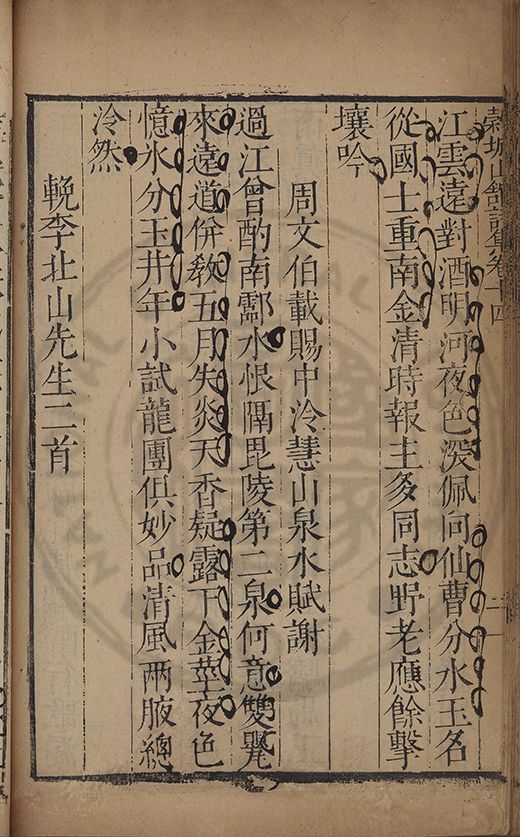 穀城山館詩集卷十四
江雲遠對酒明河夜色深佩向仙曹分水玉名
從國士重南金清時報主多同志野老應餘擊
壤吟
周文伯載賜中泠慧山泉水賦謝
過江曾酌南酃水恨隔毘陵第二泉何意雙罌
來遠道併教五月失炎天香疑露下金莖夜色
憶氷分玉井年小試龍團俱妙品清風兩腋總
泠然
輓李北山先生二首